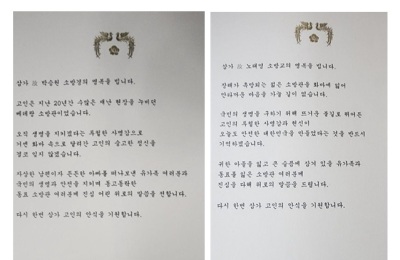 삼가 故 박승원 소방경의 명복을 빕니다.
고인은 지난 20년간 수많은 재난 현장을 누비던
베테랑 소방관이었습니다.
오직 생명을 지키겠다는 투철한 사명감으로
거센 화마 속으로 달려간 고인의 숭고한 정신을
결코 잊지 않겠습니다.
자상한 남편이자 든든한 아버지를 떠나보낸 유가족 여러분과
국민의 생명과 안전을 지키며 동고동락한
동료 소방관 여러분께 진심 어린 위로의 말씀을 전합니다.
다시 한번 삼가 고인의 안식을 기원합니다.
삼가 故 노태영 소방교의 명복을 빕니다.
장래가 촉망되는 젊은 소방관을 화마에 잃어
안타까운 마음을 가눌 길이 없습니다.
국민의 생명을 구하기 위해 뜨거운 불길로 뛰어든
고인의 투철한 사명감과 헌신이
오늘도 안전한 대한민국을 만들었다는 것을 반드시
기억하겠습니다.
귀한 아들을 잃고 큰 슬픔에 잠겨 있을 유가족과
동료를 잃은 소방관 여러분께
진심을 다해 위로의 말씀을 드립니다.
다시 한번 삼가 고인의 안식을 기원합니다.